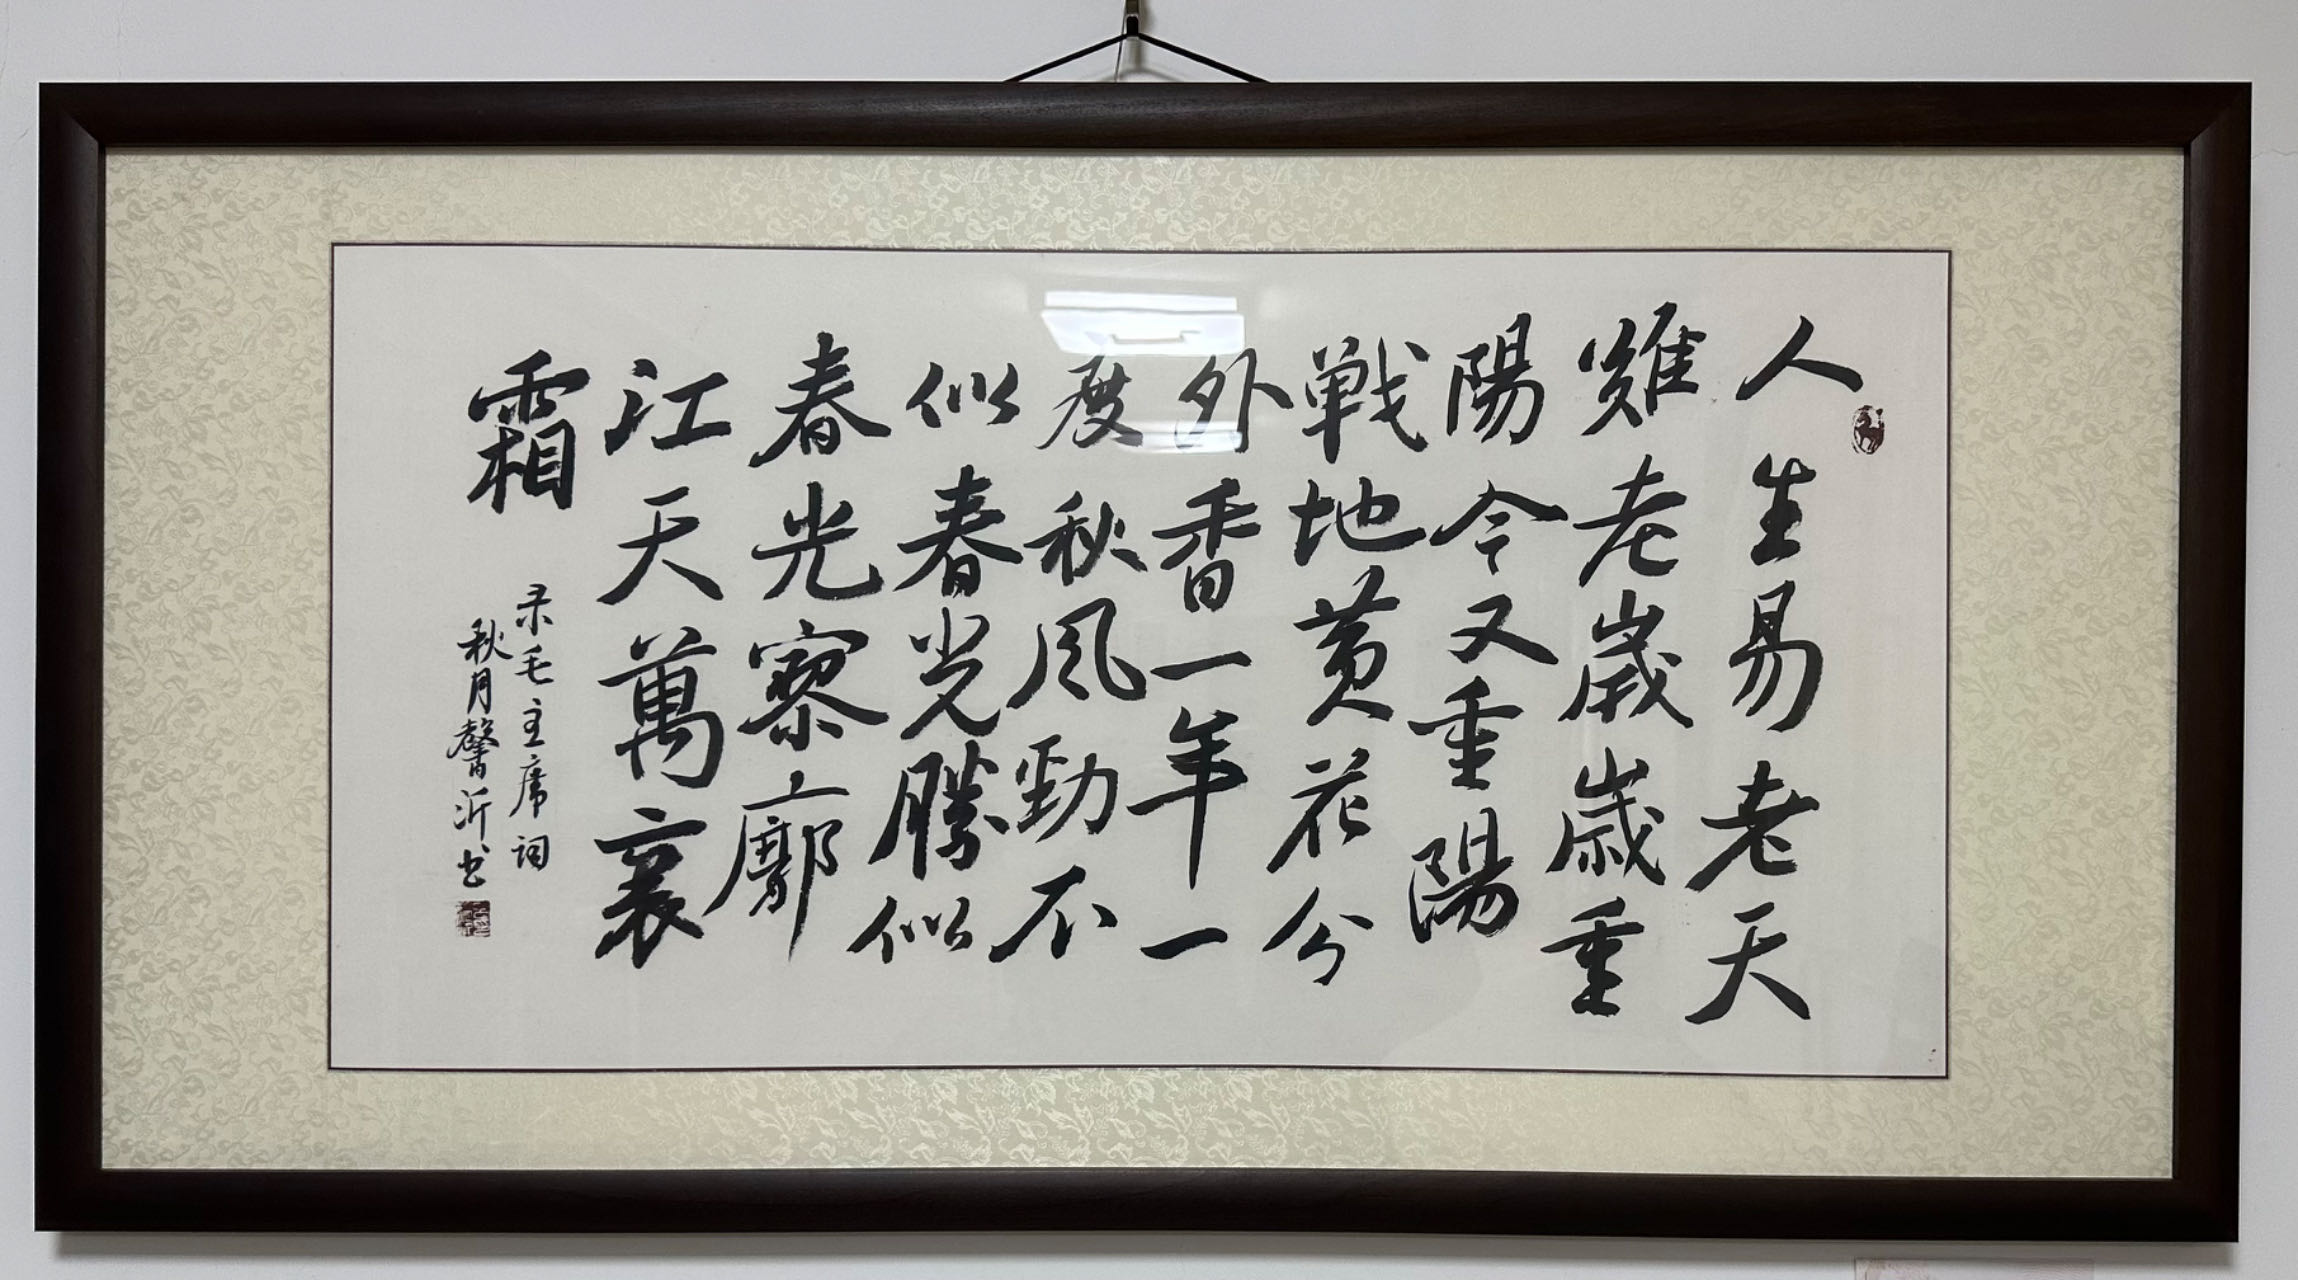 人生易老天
難老歲歲重
陽今又重陽
戦地黄花分
外香一年一
度秋风勁不
似春光勝似
春光寥廓
江天萬裏
霜
录毛主席词
秋月馨沂书